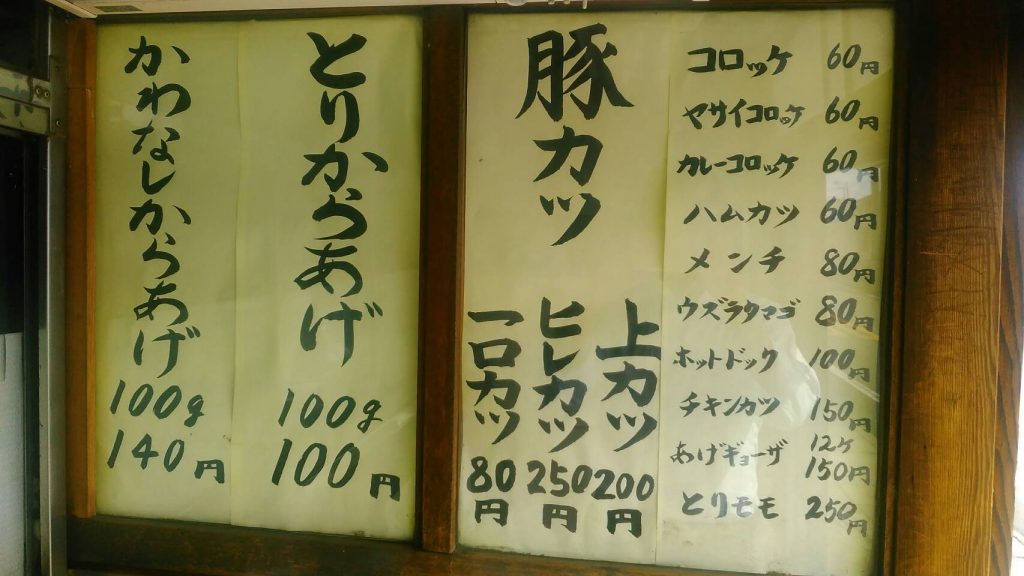 コロッケ 60円
ヤサイコロッケ 60円
カレーコロッケ 60円
ハムカツ 60円
メンチ 80円
ウズラタマゴ 80円
ホットドック 100円
チキンカツ 150円
あげギョーザ 12ケ 150円
とりモモ 250円
豚カツ
上カツ 200円
ヒレカツ 250円
一口カツ 80円
とりからあげ
100g
100円
かわなしからあげ
100g
140円